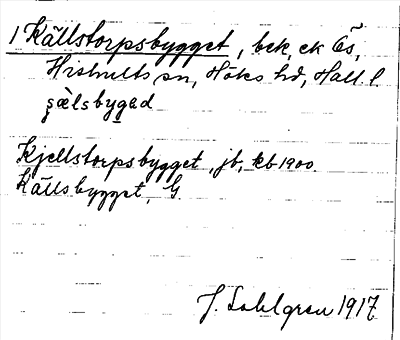 1 Källstorpsbygget, bck, ek Ös,
Hishults sn, Höks hd, Hall. l.
şæ̀lsbygəd
Kjellstorpsbygget, jb, kb 1900.
Källsbygget, G.
J. Sahlgren 1917